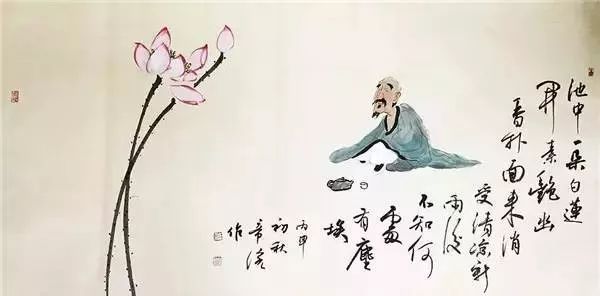 池中一朵白蓮
開素艷幽
香扑面来消
受清凉新
雨後
不知何
處
有塵
埃
丙申
初秋
希
作